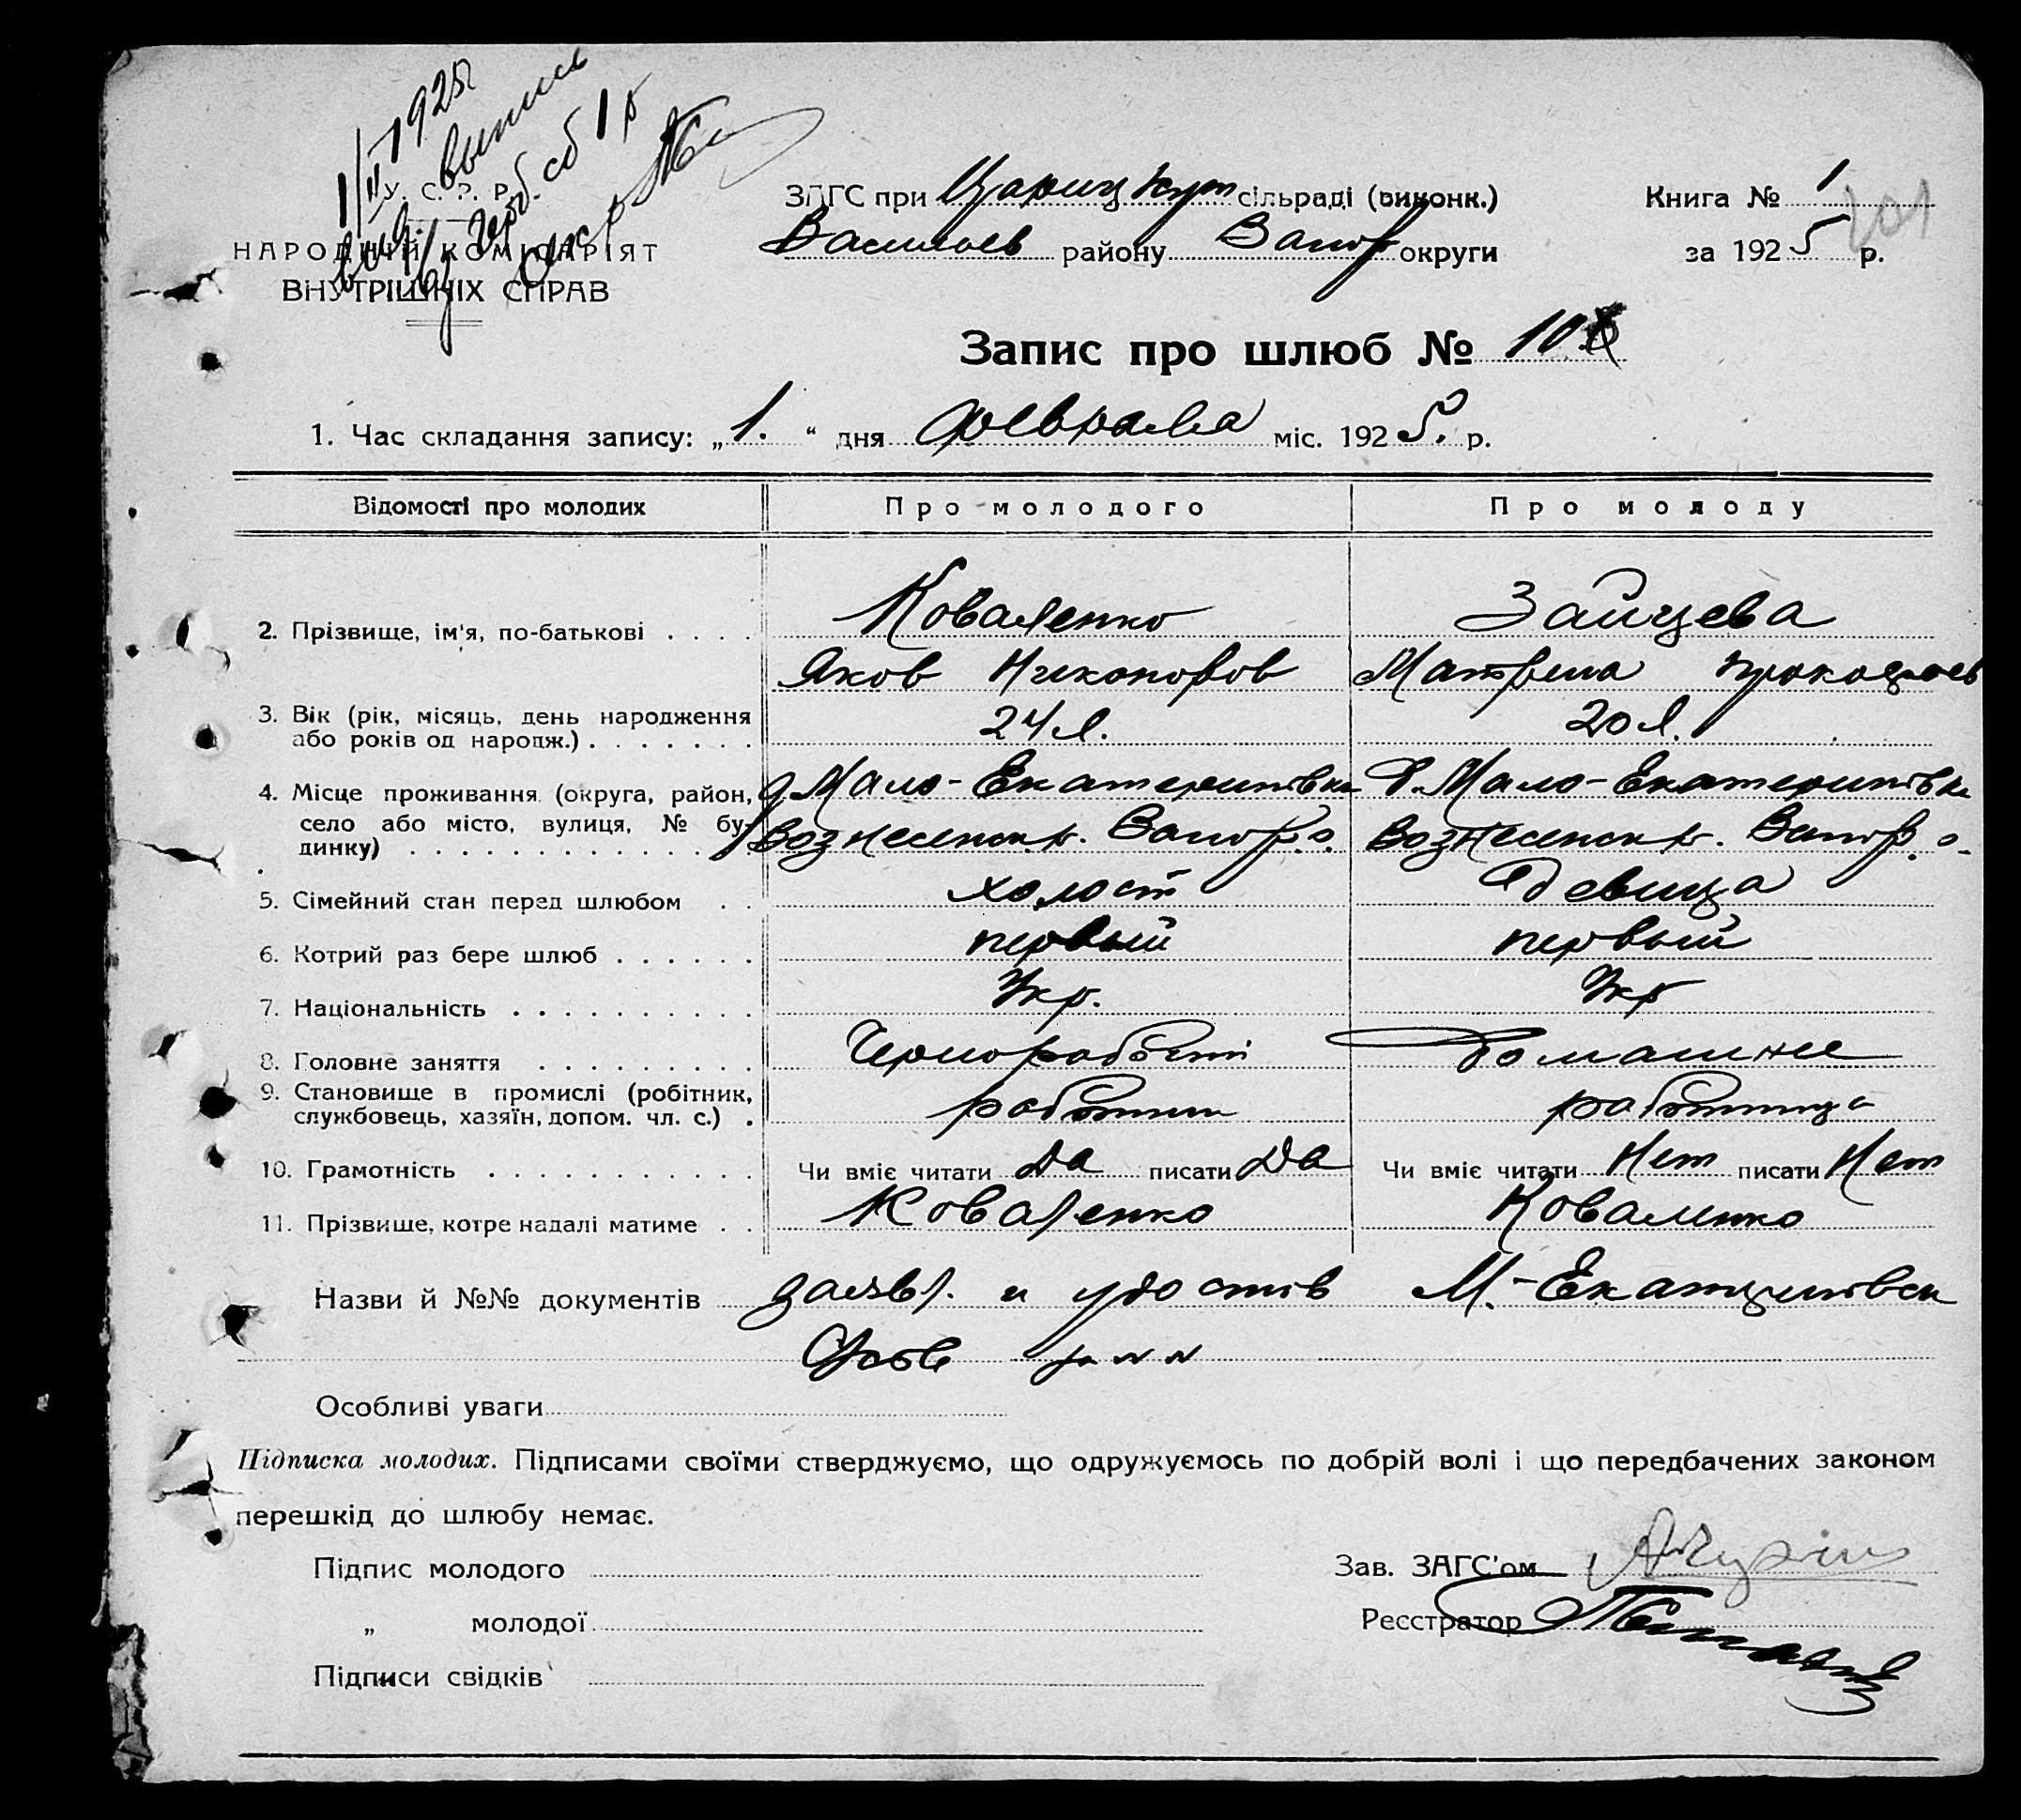 1/II 1925
выпись
У. С. Р. Р.
НАРОДНІЙ КОМІСАРІЯТ
ВНУТРІШНІХ СПРАВ
ЗАГС при Царицкут сільраді (виконк.)
Васильев району Запор округи
Книга № 1
201
за 1925 р.
Запис про шлюб № 10
1. Час складання запису: „1." дня февраля міс. 1925. р.
Відомості про молодих Про молодого Про молоду
2. Прізвище, ім'я, по-батькові . . . . Коваленко Зайцева
Яков Никоноров Матрена
3. Вік (рік, місяць, день народження
або років од народж.) . . . . . . . 24 л. 20 л.
4. Місце проживання (округа, район, д. Мало-Екатериновка д. Мало-Екатериновка
село або місто, вулиця, № бу-
динку) . . . . . . . . . . . . . Вознесенск. р. Запор. о. Вознесенск р. Запор. о.
5. Сімейний стан перед шлюбом . . холост девица
6. Котрий раз бере шлюб . . . . . . первый первый
7. Національність . . . . . . . . . . Укр. Укр
8. Головне заняття . . . . . . . . . Домашнее
9. Становище в промислі (робітник,
службовець, хазяїн, допом. чл. с.) . работник работница
10. Грамотність . . . . . . . . . . . Чи вміє читати Да писати Да Чи вміє читати Нет писати Нет
11. Прізвище, котре надалі матиме . . Коваленко Коваленко
Назви й №№ документів заявл. и удостов М.-Екатериновск
Особливі уваги
Підписка молодих. Підписами своїми стверджуємо, що одружуємось по добрій волі і що передбачених законом
перешкід до шлюбу немає.
Підпис молодого
„ молодої
Підписи свідків
Зав. ЗАГС'ом
Реєстратор